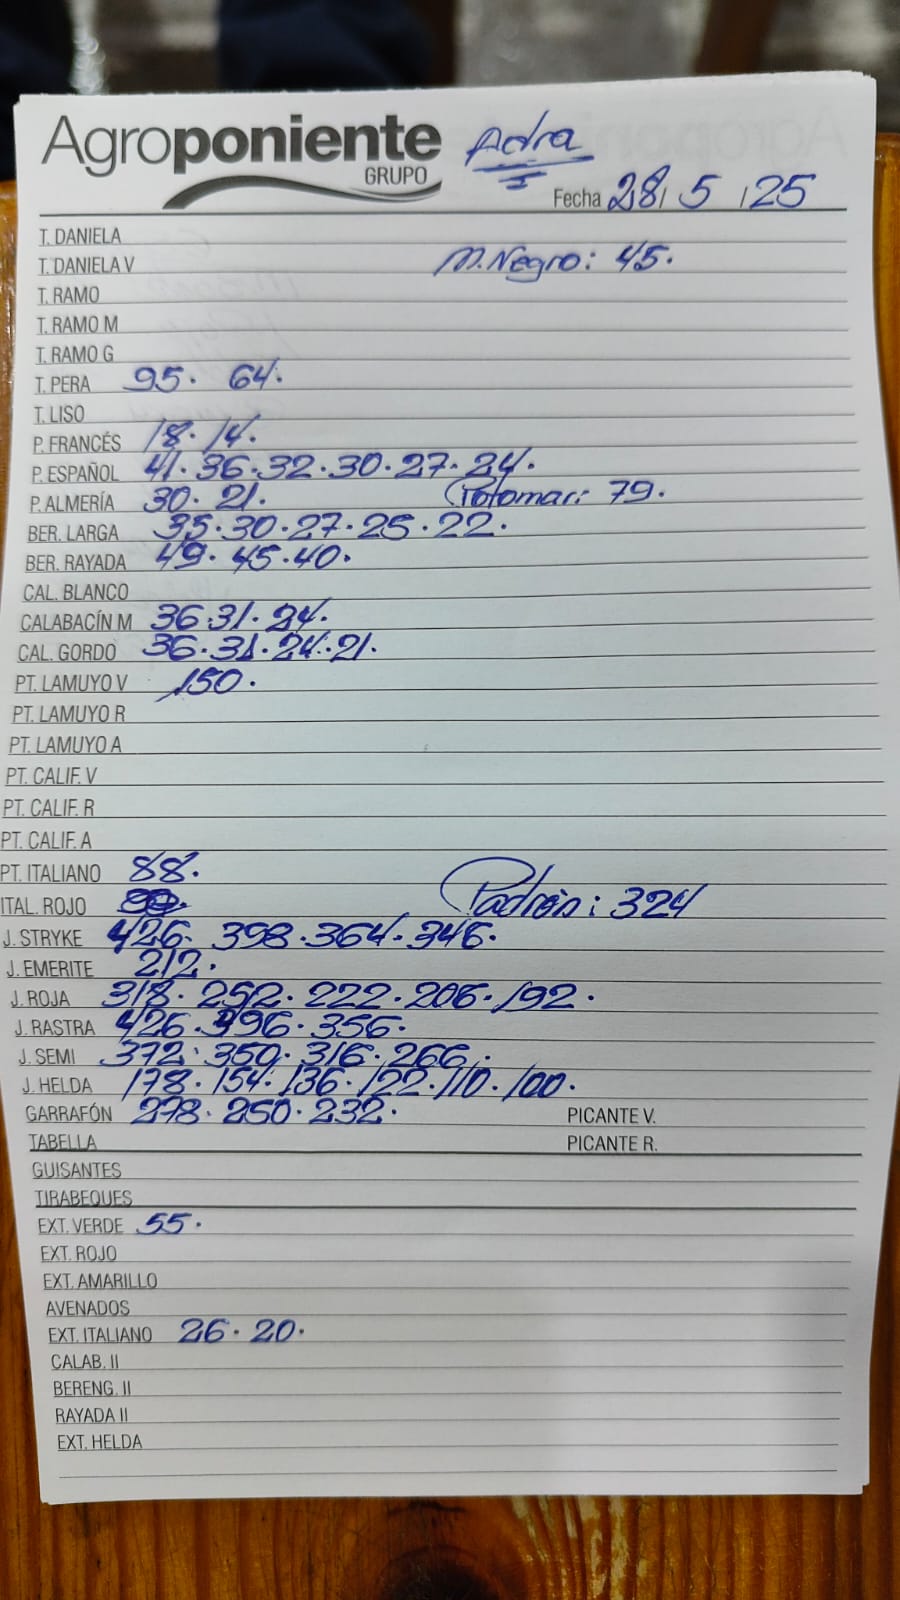 Agroponiente
GRUPO
Adra
I
Fecha 28/ 5 /25
T. DANIELA
T. DANIELA V M.Negro: 45.
T. RAMO
T. RAMO M
T. RAMO G
T. PERA 95. 64.
T. LISO
P. FRANCÉS 18. 14.
P. ESPAÑOL 41. 36. 32. 30. 27. 24.
P. ALMERÍA 30. 21. 79.
BER. LARGA 35. 30. 27. 25. 22.
BER. RAYADA 49. 45. 40.
CAL. BLANCO
CALABACÍN M 36. 31. 24.
CAL. GORDO 36. 31. 24. 21.
PT. LAMUYO V 150.
PT. LAMUYO R
PT. LAMUYO A
PT. CALIF. V
PT. CALIF. R
PT. CALIF. A
PT. ITALIANO 88.
ITAL. ROJO Padrón: 324
J. STRYKE 426. 398. 364. 346.
J. EMERITE 212.
J. ROJA 318. 252. 222. 206. 192.
J. RASTRA 426. 396. 356.
J. SEMI 372. 350. 316. 266.
J. HELDA 178. 154. 136. 122. 110. 100.
GARRAFÓN 278. 250. 232. PICANTE V.
TABELLA PICANTE R.
GUISANTES
TIRABEQUES
EXT. VERDE 55.
EXT. ROJO
EXT. AMARILLO
AVENADOS
EXT. ITALIANO 26. 20.
CALAB. II
BERENG. II
RAYADA II
EXT. HELDA